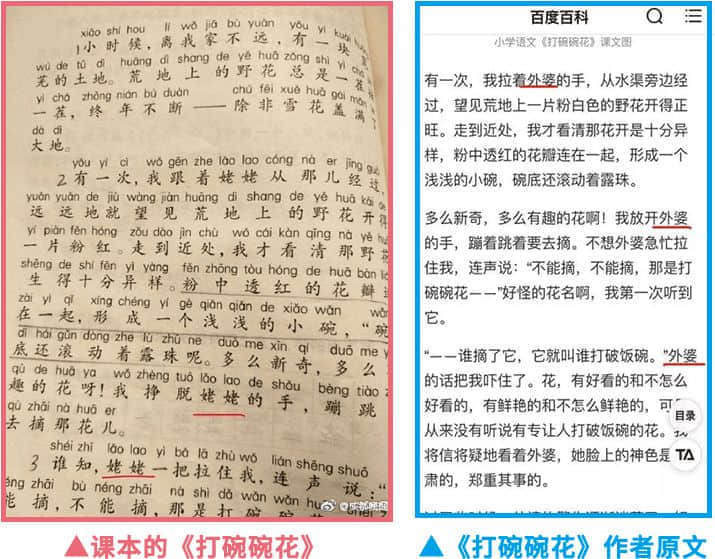 xiǎo shí hou lí wǒ jiā bù yuǎn yǒu yí kuài
1小时候，离我家不远，有一块
wú de tǔ dì huāng dì shang de yě huā zǒng shì yì chá
芜的土地。荒地上的野花总是一茬
yì chá zhōng nián bú duàn chú fēi xuě huā gài mǎn
一茬，终年不断——除非雪花盖满了
dà dì
大地。
yǒu yí cì wǒ gēn zhe lǎo lao cóng nà er jīng guò
2有一次，我跟着姥姥从那儿经过，
yuǎn yuǎn de jiù wàng jiàn huāng dì shang de yě huā kāi de
远远地就望见荒地上的野花开得
yí piàn fěn hóng zǒu dào jìn chù wǒ cái kàn qīng nà yě huā
一片粉红。走到近处，我才看清那野花
shēng de shí fēn yì yàng fěn zhōng tòu hóng de huā bàn
生得十分异样。粉中透红的花瓣
zài yì qǐ xíng chéng yí gè qiǎn qiǎn de xiǎo wǎn wǎn
在一起，形成一个浅浅的小碗，“碗
dǐ hái gǔn dòng zhe lù zhū ne duō me xīn qí duō me
底还滚动着露珠呢。多么新奇，多么
qù de huā ya wǒ zhèng tuō lǎo lao de shǒu bèng tiào
趣的花呀！我挣脱姥姥的手，蹦跳
qù zhāi nà huā er
去摘那花儿。
shéi zhī lǎo lao yì bǎ lā zhù wǒ lián shēng shuō
3谁知，姥姥一把拉住我，连声说：“
néng zhāi bù néng zhāi nà shì dǎ wǎn wǎn huā
能摘，不能摘，那是打碗碗花
▲课本的《打碗碗花》
百度百科
小学语文《打碗碗花》课文图
有一次，我拉着外婆的手，从水渠旁边经
过，望见荒地上一片粉白色的野花开得正
旺。走到近处，我才看清那花开是十分异
样，粉中透红的花瓣连在一起，形成一个
浅浅的小碗，碗底还滚动着露珠。
多么新奇，多么有趣的花啊！我放开外婆
的手，蹦着跳着要去摘。不想外婆急忙拉
住我，连声说：“不能摘，不能摘，那是打
碗碗花——”好怪的花名啊，我第一次听到
它。
“——谁摘了它，它就叫谁打破饭碗。”外婆
的话把我吓住了。花，有好看的和不怎么
好看的，有鲜艳的和不怎么鲜艳的，可
从来没有听说有专让人打破饭碗的花。我
将信将疑地看着外婆，她脸上的神色是
肃的，郑重其事的。
目录
TA
▲《打碗碗花》作者原文